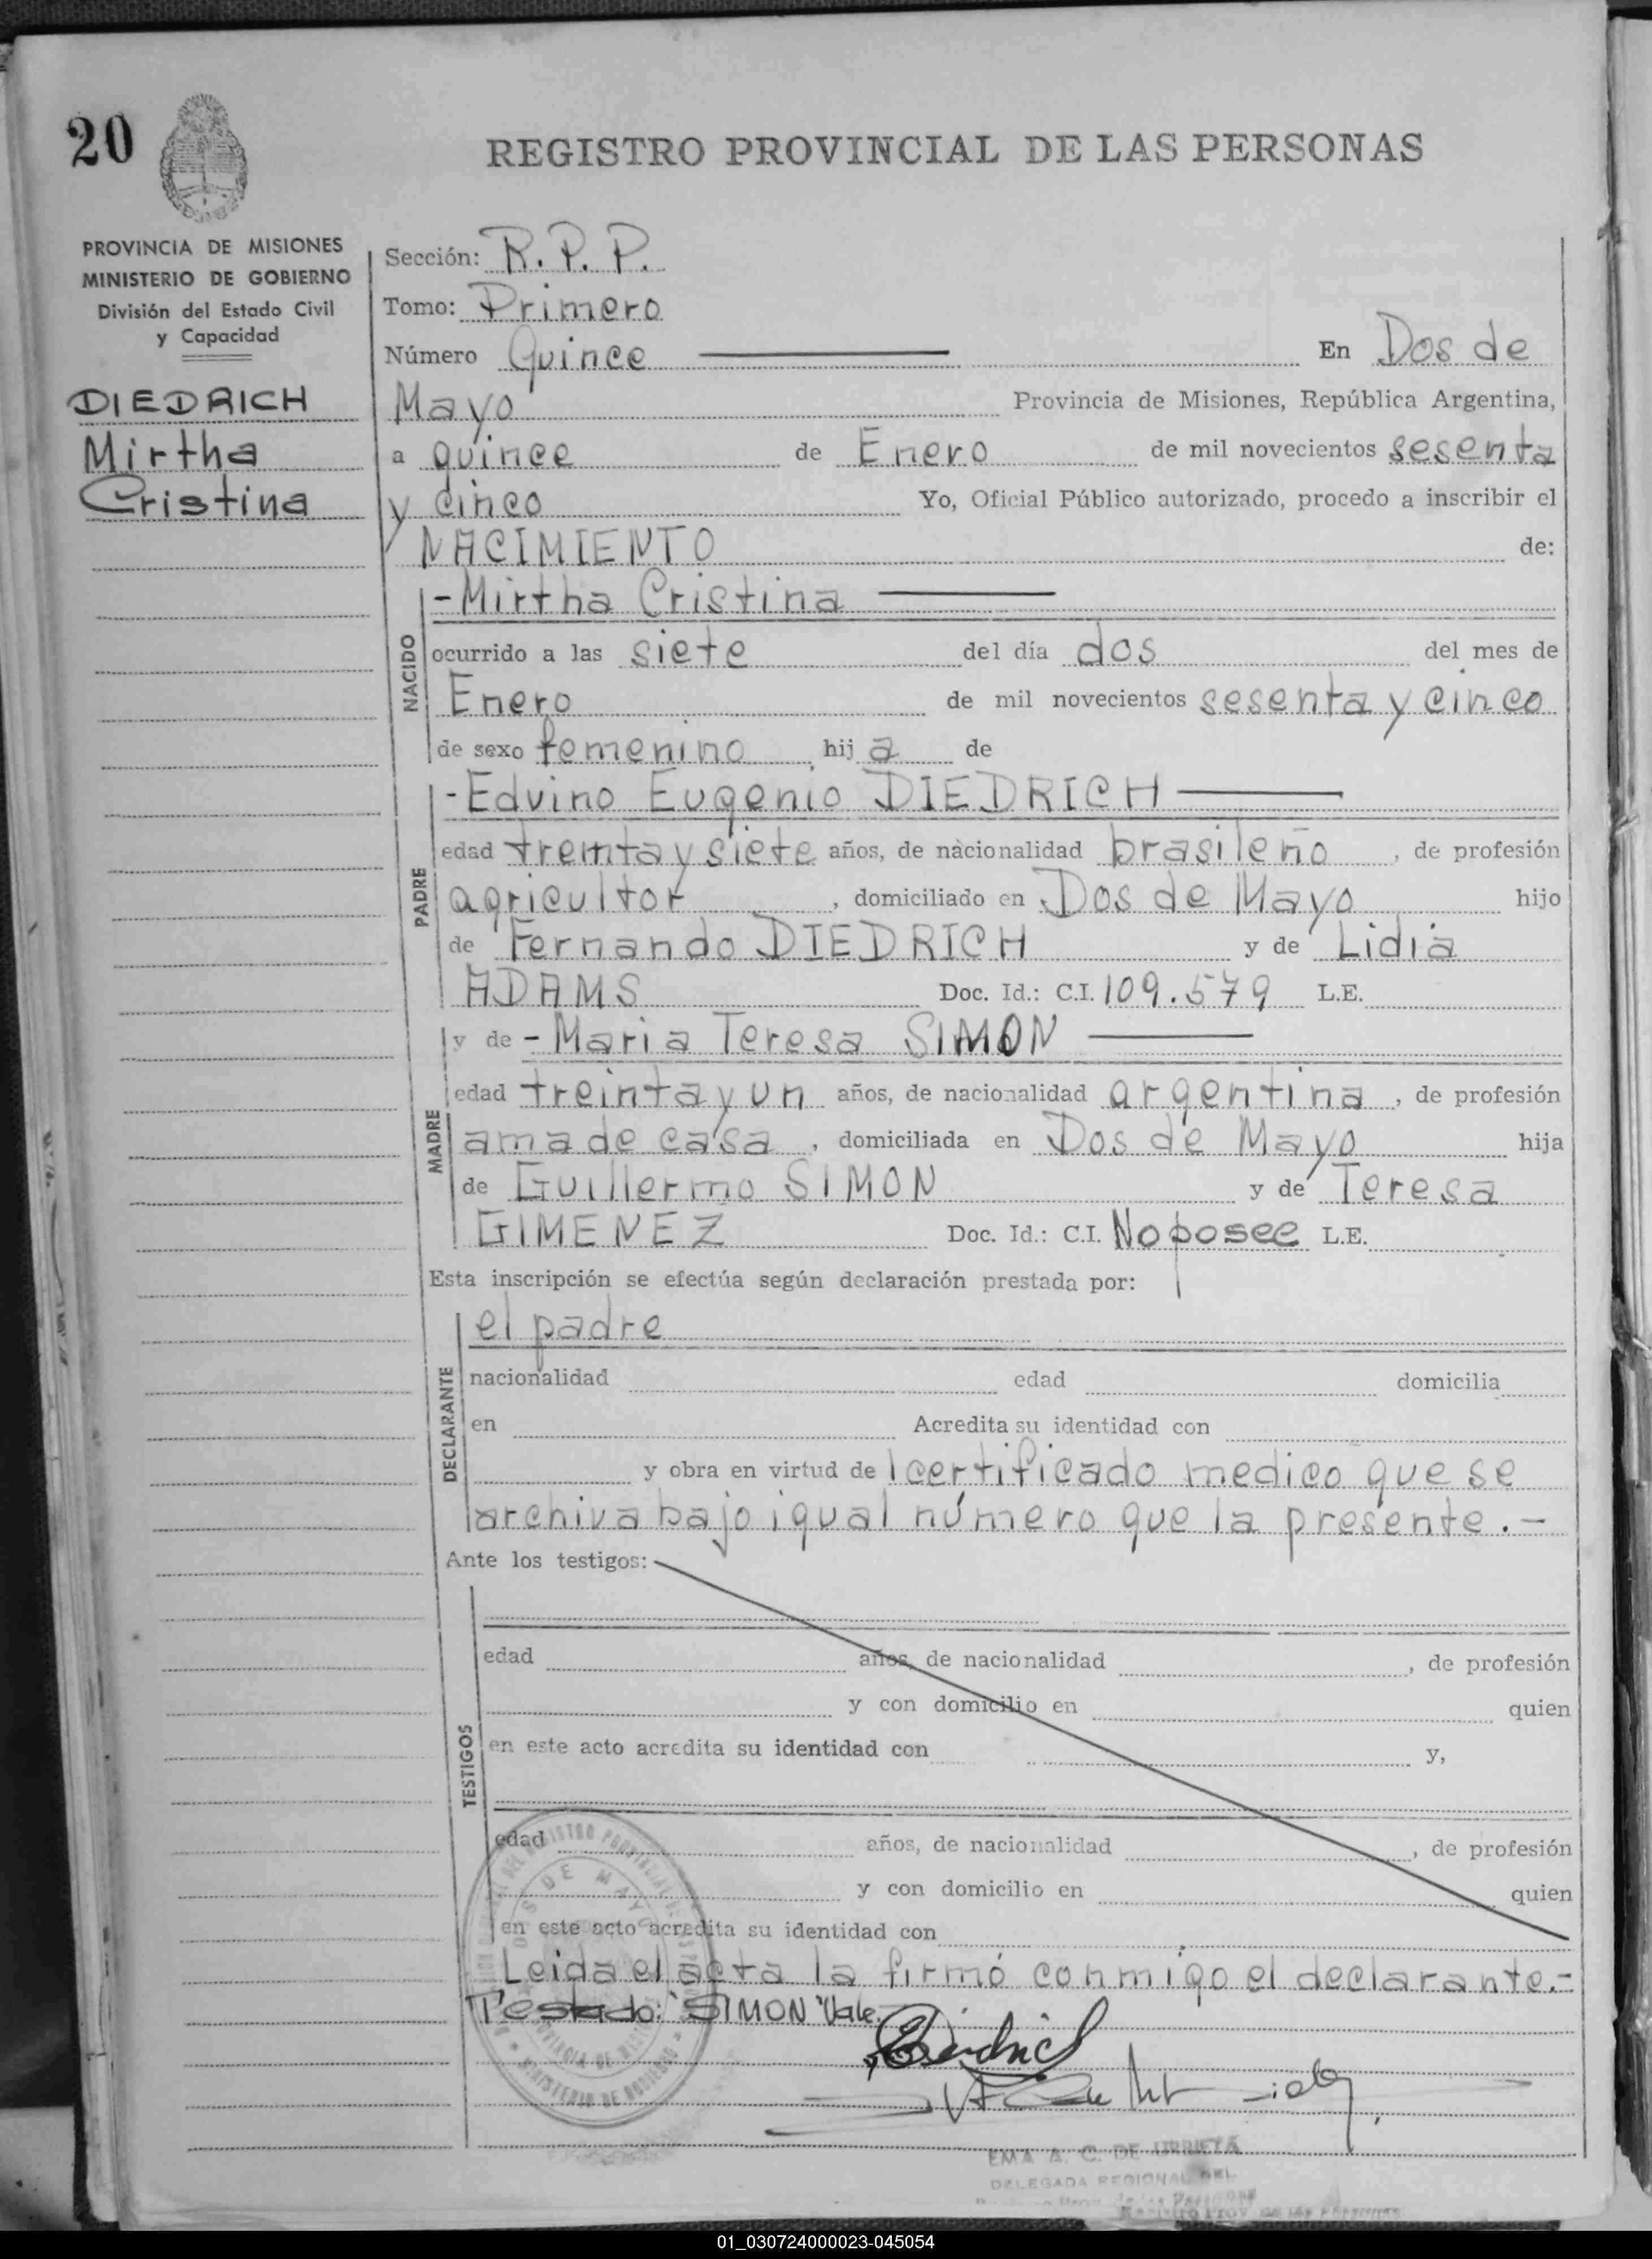 20
REGISTRO PROVINCIAL DE LAS PERSONAS
PROVINCIA DE MISIONES
MINISTERIO DE GOBIERNO
División del Estado Civil
y Capacidad
DIEDRICH
Mirtha
Cristina
Sección: R. P. P.
Tomo: Primero
Número Quince En Dos de
Mayo Provincia de Misiones, República Argentina,
a quince de Enero de mil novecientos sesenta
y cinco Yo, Oficial Público autorizado, procedo a inscribir el
NACIMIENTO de:
NACIDO
-Mirtha Cristina
ocurrido a las siete del día dos del mes de
Enero de mil novecientos sesenta y cinco
de sexo femenino hij a de
PADRE
-Edvino Eugenio DIEDRICH
edad treinta y siete años, de nacionalidad brasileño, de profesión
agricultor, domiciliado en Dos de Mayo hijo
de Fernando DIEDRICH y de Lidia
ADAMS Doc. Id.: C.I. 109.579 L.E.
MADRE
y de -Maria Teresa SIMON
edad treinta y un años, de nacionalidad argentina, de profesión
ama de casa, domiciliada en Dos de Mayo hija
de Guillermo SIMON y de Teresa
GIMENEZ Doc. Id.: C.I. No posee L.E.
Esta inscripción se efectúa según declaración prestada por:
DECLARANTE
el padre
nacionalidad edad domicilia
en Acredita su identidad con
y obra en virtud de l certificado medico que se
archiva bajo igual número que la presente.-
Ante los testigos:
TESTIGOS
edad años, de nacionalidad, de profesión
y con domicilio en quien
en este acto acredita su identidad con y,
edad años, de nacionalidad, de profesión
y con domicilio en quien
en este acto acredita su identidad con
Leida el acta la firmó conmigo el declarante.-
Testado: "SIMON" Vale.
EDiedrich
EMA A. C. DE URRIETA
DELEGADA REGIONAL DEL
01_030724000023-045054